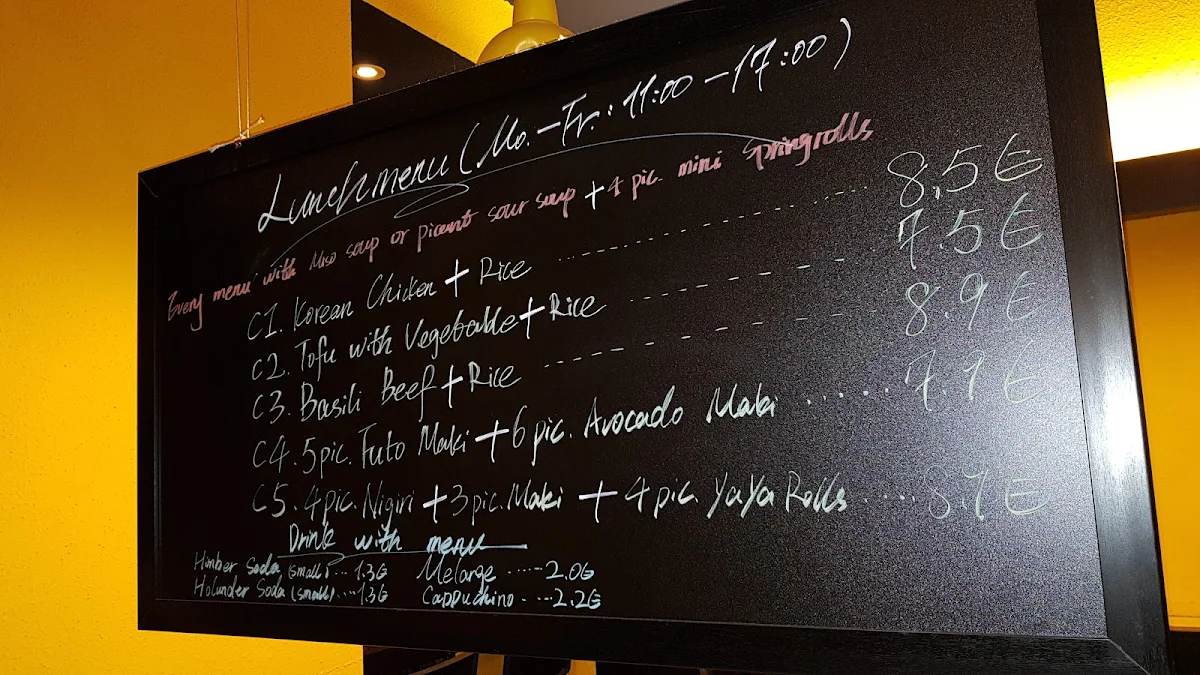 Lunchmenu (Mo. - Fr.: 11:00 - 17:00)
Every menu with Miso soup or picant sour soup + 4 pic. mini springrolls
C1. Korean Chicken + Rice ........ 8,5 €
C2. Tofu with Vegetable + Rice ------ 7.5 €
C3. Basili Beef + Rice ------ 8.9 €
C4. 5 pic. Futo Maki + 6 pic. Avocado Maki ..... 7.9 €
C5. 4 pic. Nigiri + 3 pic. Maki + 4 pic. YaYa Rolls .... 8.7 €
Drink with menu
Himber Soda (small) ... 1.3€ Melange ..... 2.0€
Holunder Soda (small) .... 1.3€ Cappuchino .... 2.2€